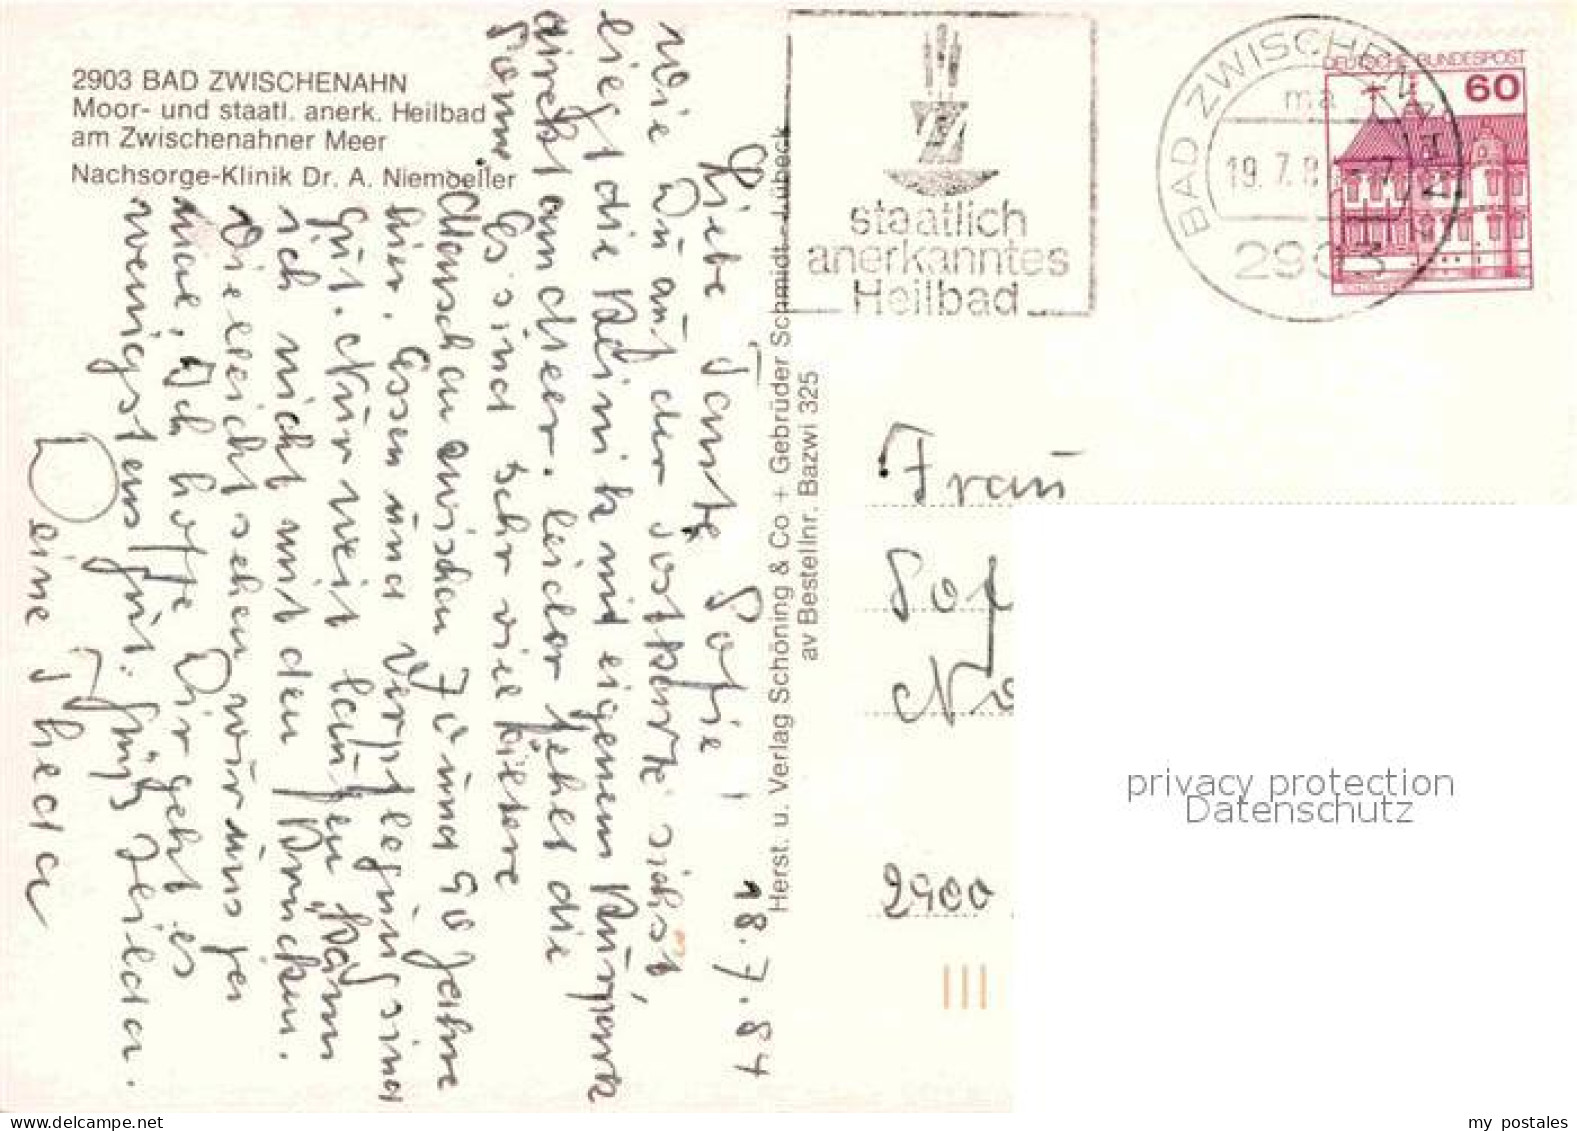 2903 BAD ZWISCHENAHN
Moor- und staatl. anerk. Heilbad
am Zwischenahner Meer
Nachsorge-Klinik Dr. A. Niemoeller
staatlich
anerkanntes
Heilbad
BAD ZWISCHENAHN
ma
19. 7. 8
2903
DEUTSCHE BUNDESPOST
60
Herst. u. Verlag Schöning & Co + Gebrüder Schmidt - Lübeck
av Bestellnr. Bazwi 325
18.7.84
Liebe Tante Sofie!
Wie Du auf der Postkarte siehst,
liegt die Klinik mit eigenem Kurpark
direkt am Meer. Leider fehlt die
Sonne. Es sind sehr viel ältere
Menschen zwischen 70 und 90 Jahre
hier. Essen und Verpflegung sind
gut. Nur weit laufen kann
ich nicht mit den Krücken.
Vielleicht sehen wir uns ja
mal, Ich hoffe Dir geht es
wenigstens gut. Grüß Hilda.
Deine Theda
Frau
Sof
No
2900
privacy protection
Datenschutz
my postales